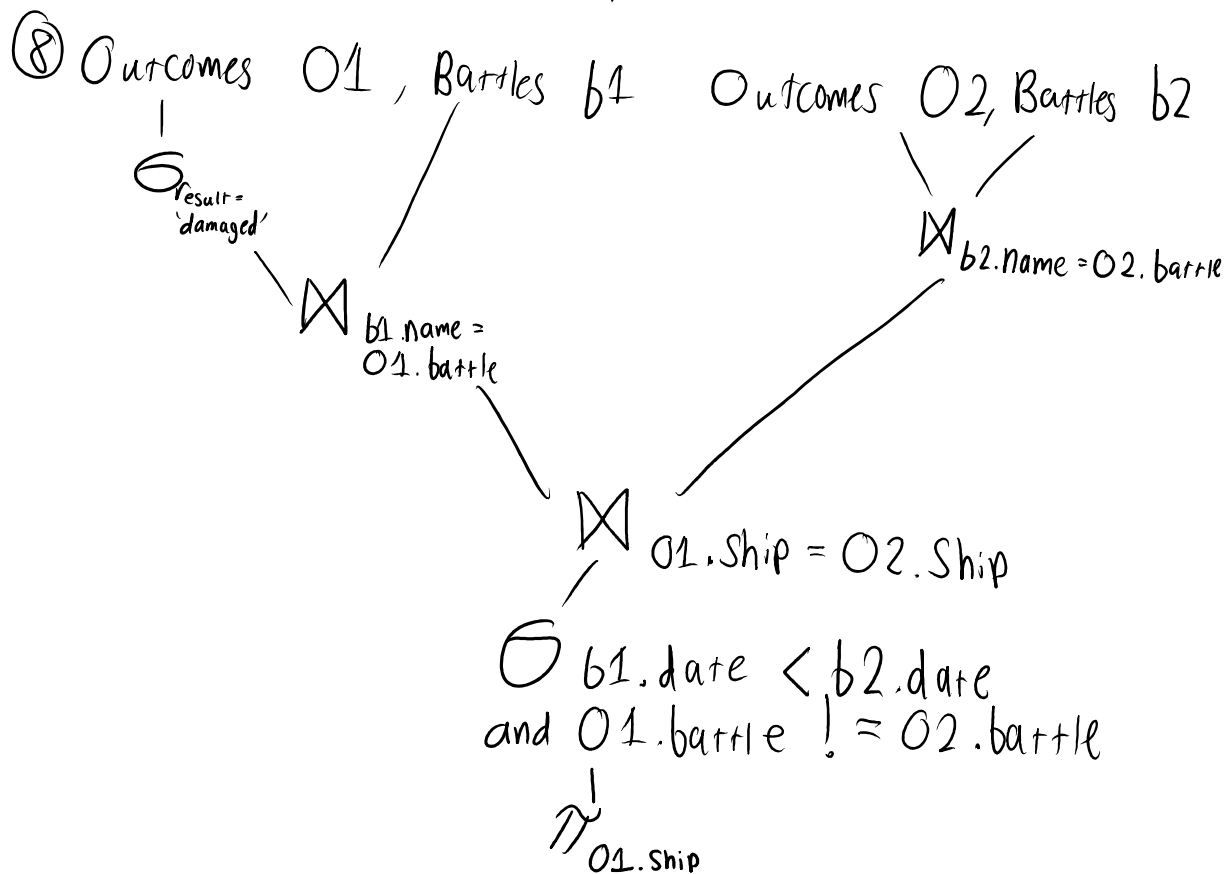 ⑧ Outcomes O1, Battles b1 Outcomes O2, Battles b2
σ result =
'damaged'
⋈ b2.name = O2.battle
⋈ b1.name =
O1.battle
⋈ O1.Ship = O2.Ship
σ b1.date < b2.date
and O1.battle != O2.battle
π O1.ship